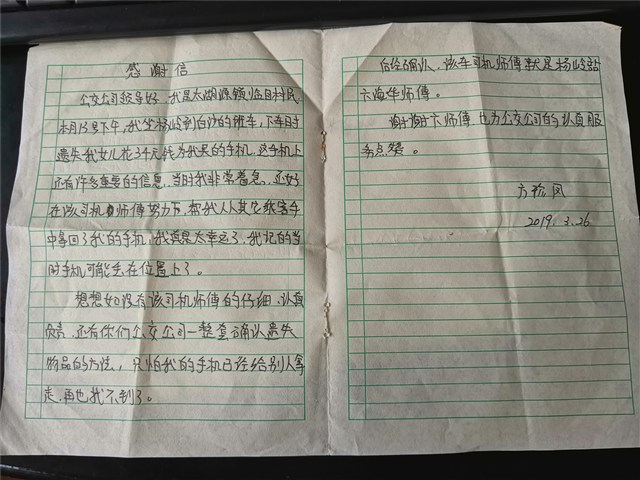 感谢信
公交公司领导好，我是太湖源镇临目村民
本月13号下午，我坐杨岭到白沙的班车，下车时
遗失我女儿花3千元钱为我买的手机，这手机上
还有许多重要的信息，当时我非常着急，还好
在该司机师傅努力下，帮我从其它乘客手
中拿回了我的手机，我真是太幸运了，我记的当
时手机可能丢在位置上了。
想想如没有该司机师傅的仔细、认真
负责，还有你们公交公司一整套确认遗失
物品的方法，只怕我的手机已经给别人拿
走，再也找不到了。
后经确认，该车司机师傅就是杨岭站
卞海华师傅。
谢谢卞师傅，也为公交公司的认真服
务点赞。
方 凤
2019.3.26